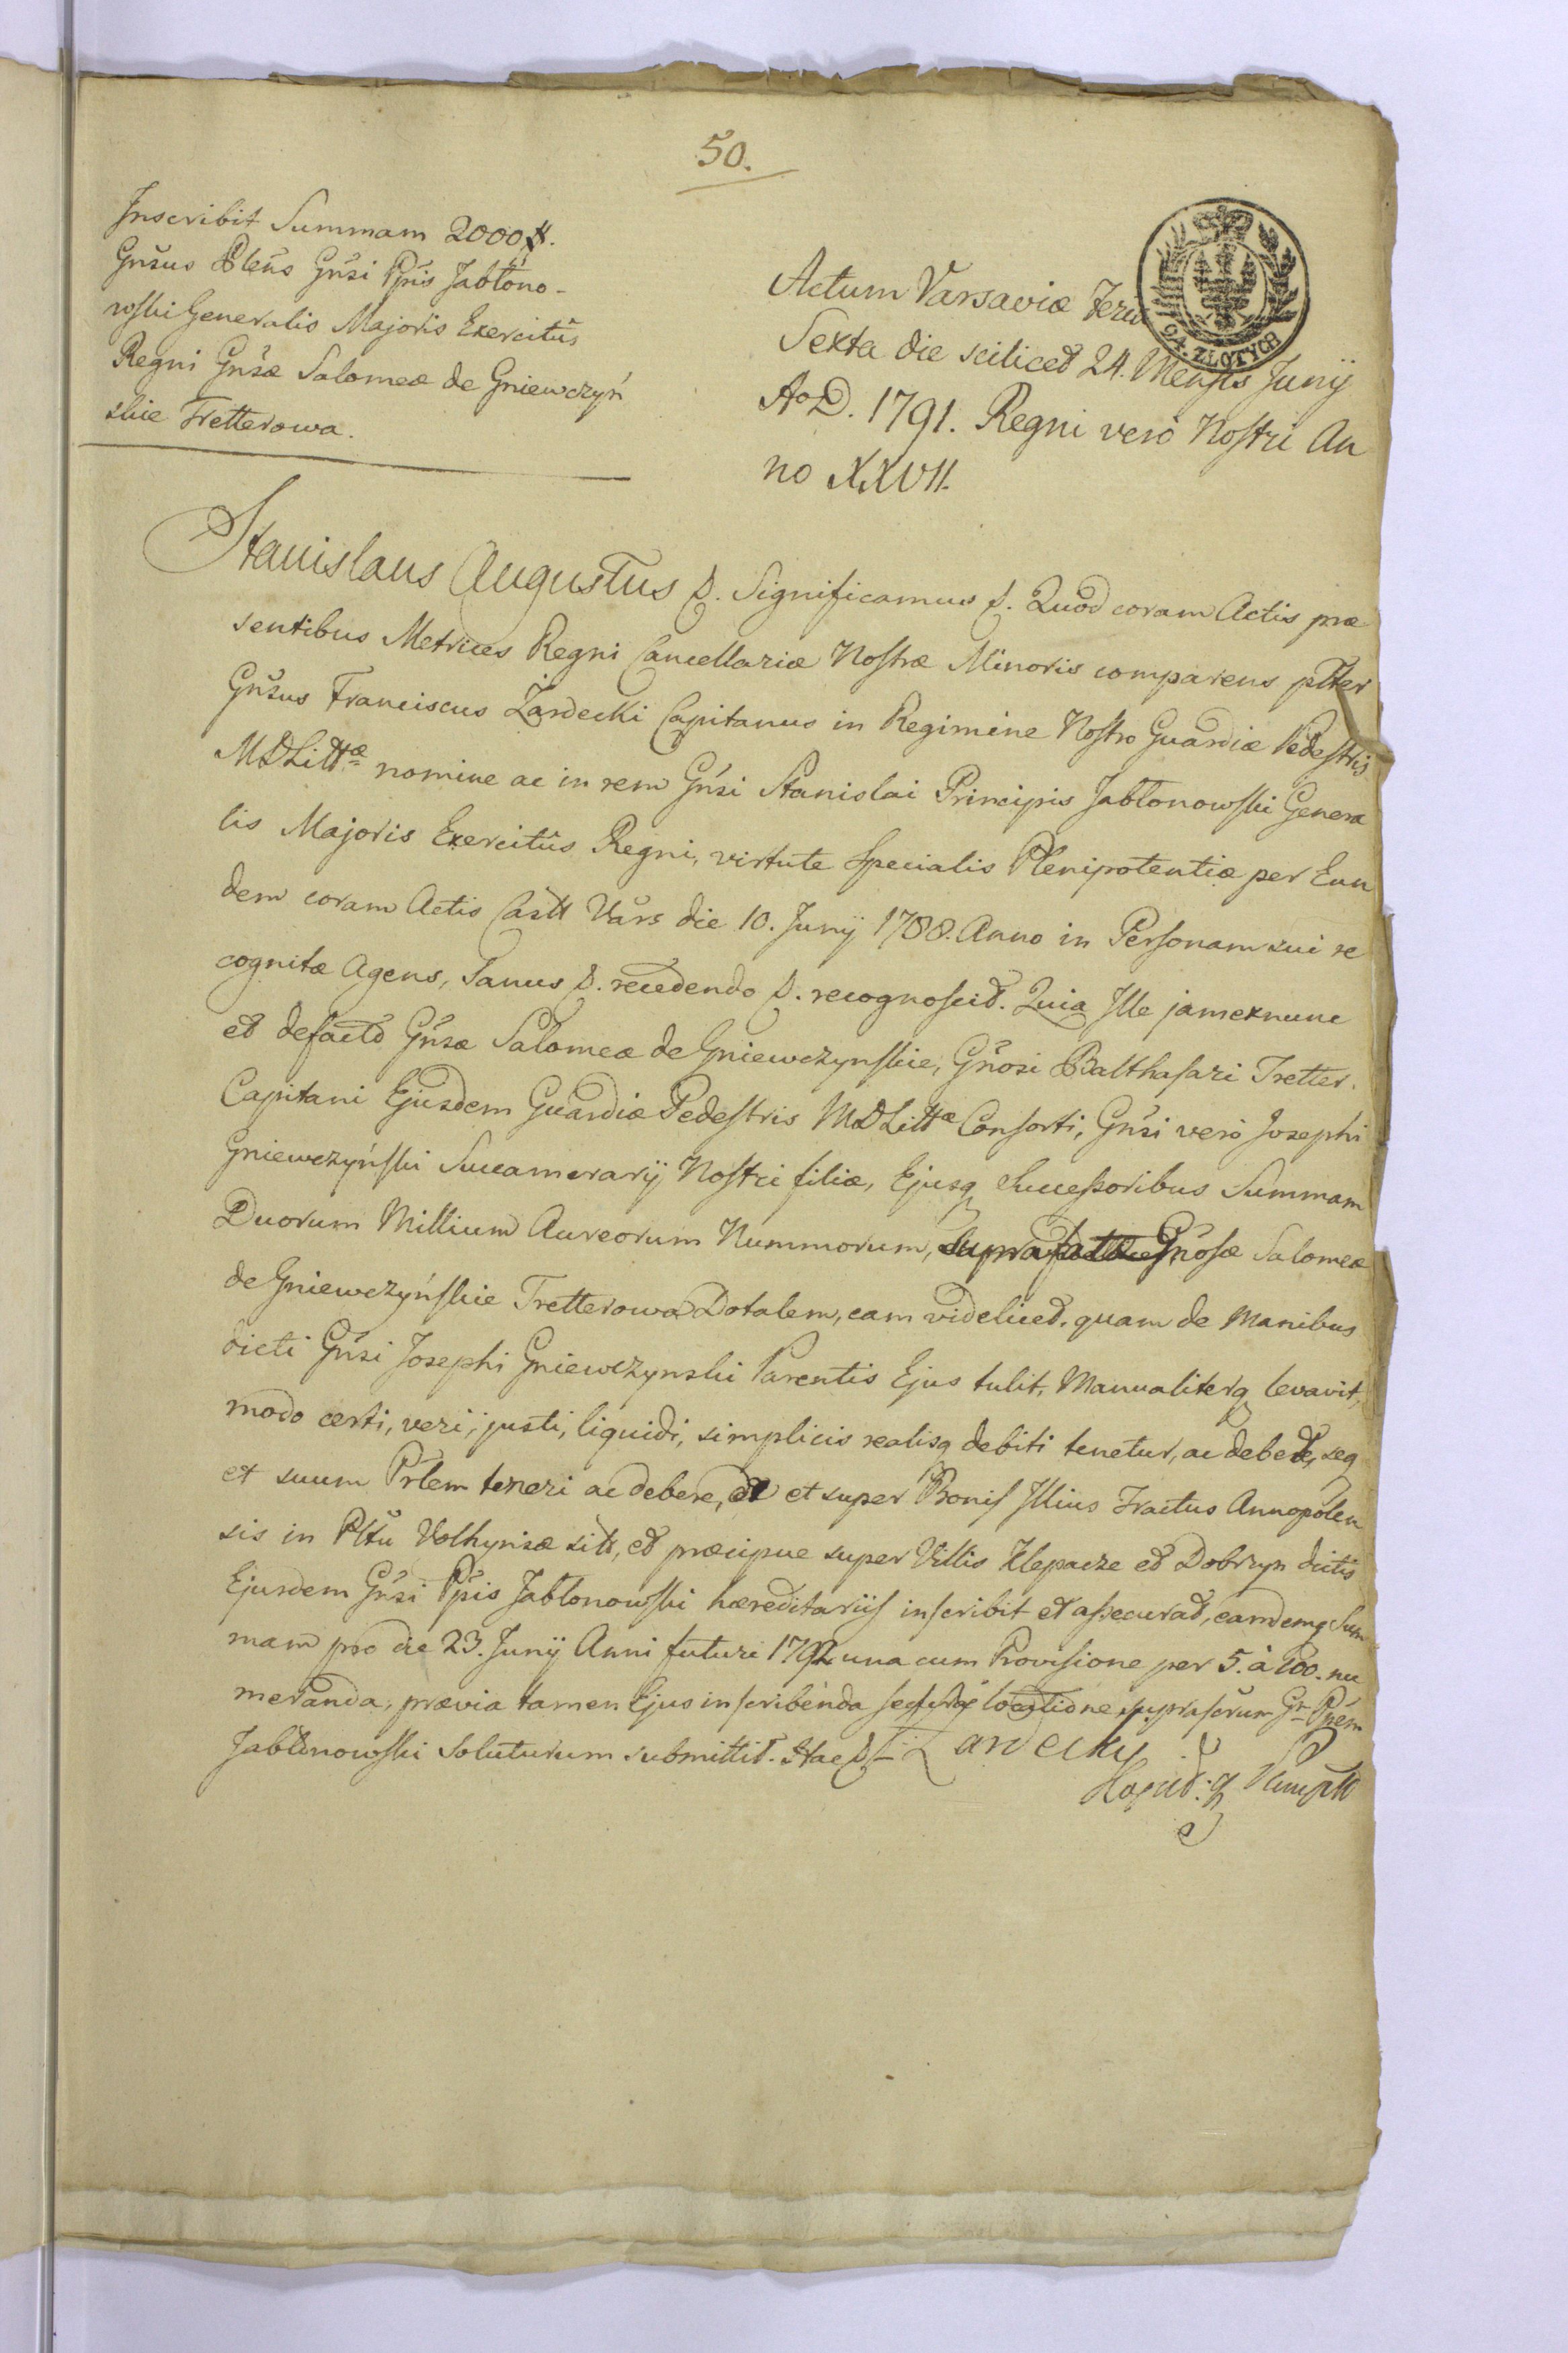 50.
Inscribit Summam 2000 #.
Gnsus Plens Gnsi Ppis Jabłono-
wski Generalis Majoris Exercitûs
Regni Gnsæ Salomeæ de Gniewczyń
skie Tretterowa.
CZ. ZŁOTYCH
Actum Varsaviæ Feria
Sexta die scilicet 24. Mensis Junij
Ao D. 1791. Regni verò Nostri An
no XXVII.
Stanislaus Augustus &. Significamus &. Quod coram Actis præ
sentibus Metrices Regni Cancellariæ Nostræ Minoris comparens plter
Gnsus Franciscus Żardecki Capitanus in Regimine Nostro Guardiæ Pedestris
MDLittæ nomine ac in rem Gnsi Stanislai Principis Jabłonowski Genera
lis Majoris Exercitûs Regni, virtute specialis Plenipotentiæ per Eun
dem coram Actis Castt Vars die 10. Junij 1788. Anno in Personam sui re
cognitæ Agens, Sanus &. recedendo &. recognoscit. Quia Ille jamexnunc
et defacto Gnsæ Salomeæ de Gniewczynskie, Gnosi Balthasari Tretter
Capitani Ejusdem Guardiæ Pedestris MDLittæ Consorti, Gnsi verò Josephi
Gniewczyński Succamerarij Nostri filiæ, Ejusq Successoribus Summam
Duorum Millium Aureorum Nummorum, Gnosæ Salomeæ
de Gniewczyńskie Tretterowa Dotalem, eam videlicet. quam de Manibus
dicti Gnsi Josephi Gniewczynski Parentis Ejus tulit, Manualiterq levavit,
modo certi, veri, justi, liquidi, simplicis realisq debiti tenetur, ac debet, seq
et suum Prlem teneri ac debere, et super Bonis Illius Tractus Annopolen
sis in Pltu Volhyniæ sitt, et præcipue super Villis Klepacze et Dobryn dictis
Ejusdem Gnsi Ppis Jabłonowski hæreditariis inscribit et assecurat, eamdemq Sum
mam pro die 23. Junij Anni futuri 1792 una cum Provisione per 5. à 100. nu
meranda, prævia tamen Ejus inscribenda Gr Ppem
Jabłonowski soluturum submittit. Hac & Żardecky